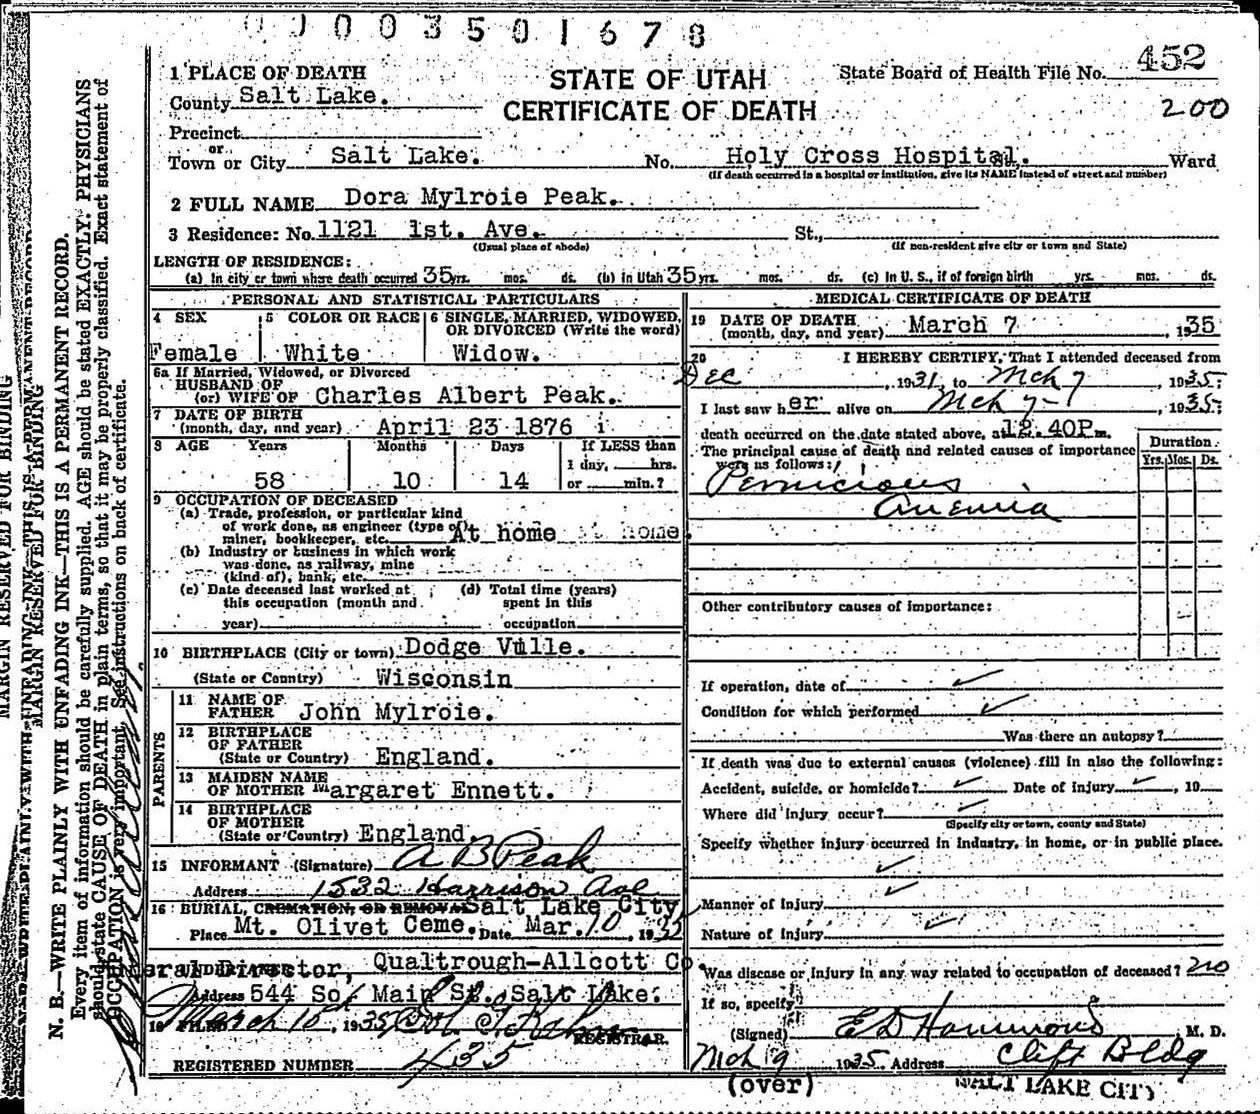 00003501678
STATE OF UTAH
CERTIFICATE OF DEATH
State Board of Health File No. 452
200
1 PLACE OF DEATH
County Salt Lake.
Precinct
or
Town or City Salt Lake. No. Holy Cross Hospital. Ward
(If death occurred in a hospital or institution, give its NAME instead of street and number)
2 FULL NAME Dora Mylroie Peak.
3 Residence: No. 1121 1st. Ave. St.,
(Usual place of abode) (If non-resident give city or town and State)
LENGTH OF RESIDENCE:
(a) In city or town where death occurred 35 yrs. mos. ds. (b) in Utah 35 yrs. mos. ds. (c) In U. S., if of foreign birth yrs. mos. ds.
PERSONAL AND STATISTICAL PARTICULARS
4 SEX 5 COLOR OR RACE 6 SINGLE, MARRIED, WIDOWED, OR DIVORCED (Write the word)
Female White Widow.
6a If Married, Widowed, or Divorced
HUSBAND OF
(or) WIFE OF Charles Albert Peak.
7 DATE OF BIRTH
(month, day, and year) April 23 1876
8 AGE Years Months Days If LESS than
1 day, hrs.
58 10 14 or min.?
9 OCCUPATION OF DECEASED
(a) Trade, profession, or particular kind
of work done, as engineer (type of)
miner, bookkeeper, etc. At home at home
(b) Industry or business in which work
was done, as railway, mine
(kind of), bank, etc.
(c) Date deceased last worked at (d) Total time (years)
this occupation (month and spent in this
year) occupation
10 BIRTHPLACE (City or town) Dodge Ville.
(State or Country) Wisconsin
PARENTS
11 NAME OF
FATHER John Mylroie.
12 BIRTHPLACE
OF FATHER
(State or Country) England.
13 MAIDEN NAME
OF MOTHER Margaret Ennett.
14 BIRTHPLACE
OF MOTHER
(State or Country) England.
15 INFORMANT (Signature) A B Peak
Address 1532 Harrison Ave
16 BURIAL, CREMATION, OR REMOVAL Salt Lake City
Place Mt. Olivet Ceme. Date Mar. 10, 1935
eral Director, Qualtrough-Allcott Co
UNDERTAKER
Address 544 So. Main St. Salt Lake.
18 FILED March 10, 1935
REGISTRAR.
REGISTERED NUMBER 435
MEDICAL CERTIFICATE OF DEATH
19 DATE OF DEATH
(month, day, and year) March 7 1935
20 I HEREBY CERTIFY, That I attended deceased from
Dec, 1931, to Mch 7, 1935;
I last saw her alive on Mch 7, 1935;
death occurred on the date stated above, at 12.40P m.
The principal cause of death and related causes of importance
were as follows:
Duration
Yrs. Mos. Ds.
Pernicious
Anemia
Other contributory causes of importance:
If operation, date of
Condition for which performed
Was there an autopsy?
If death was due to external causes (violence) fill in also the following:
Accident, suicide, or homicide? Date of injury, 19
Where did injury occur?
(Specify city or town, county and State)
Specify whether injury occurred in industry, in home, or in public place.
Manner of injury
Nature of injury
Was disease or injury in any way related to occupation of deceased? no
If so, specify
(Signed) E D Hammond, M. D.
Mch 9 1935 Address Clift Bldg
(over) SALT LAKE CITY
MARGIN RESERVED FOR BINDING
MARGIN RESERVED FOR BINDING
N. B.—WRITE PLAINLY WITH UNFADING INK—THIS IS A PERMANENT RECORD.
Every item of information should be carefully supplied. AGE should be stated EXACTLY. PHYSICIANS
should state CAUSE OF DEATH in plain terms, so that it may be properly classified. Exact statement of
OCCUPATION is very important. See instructions on back of certificate.